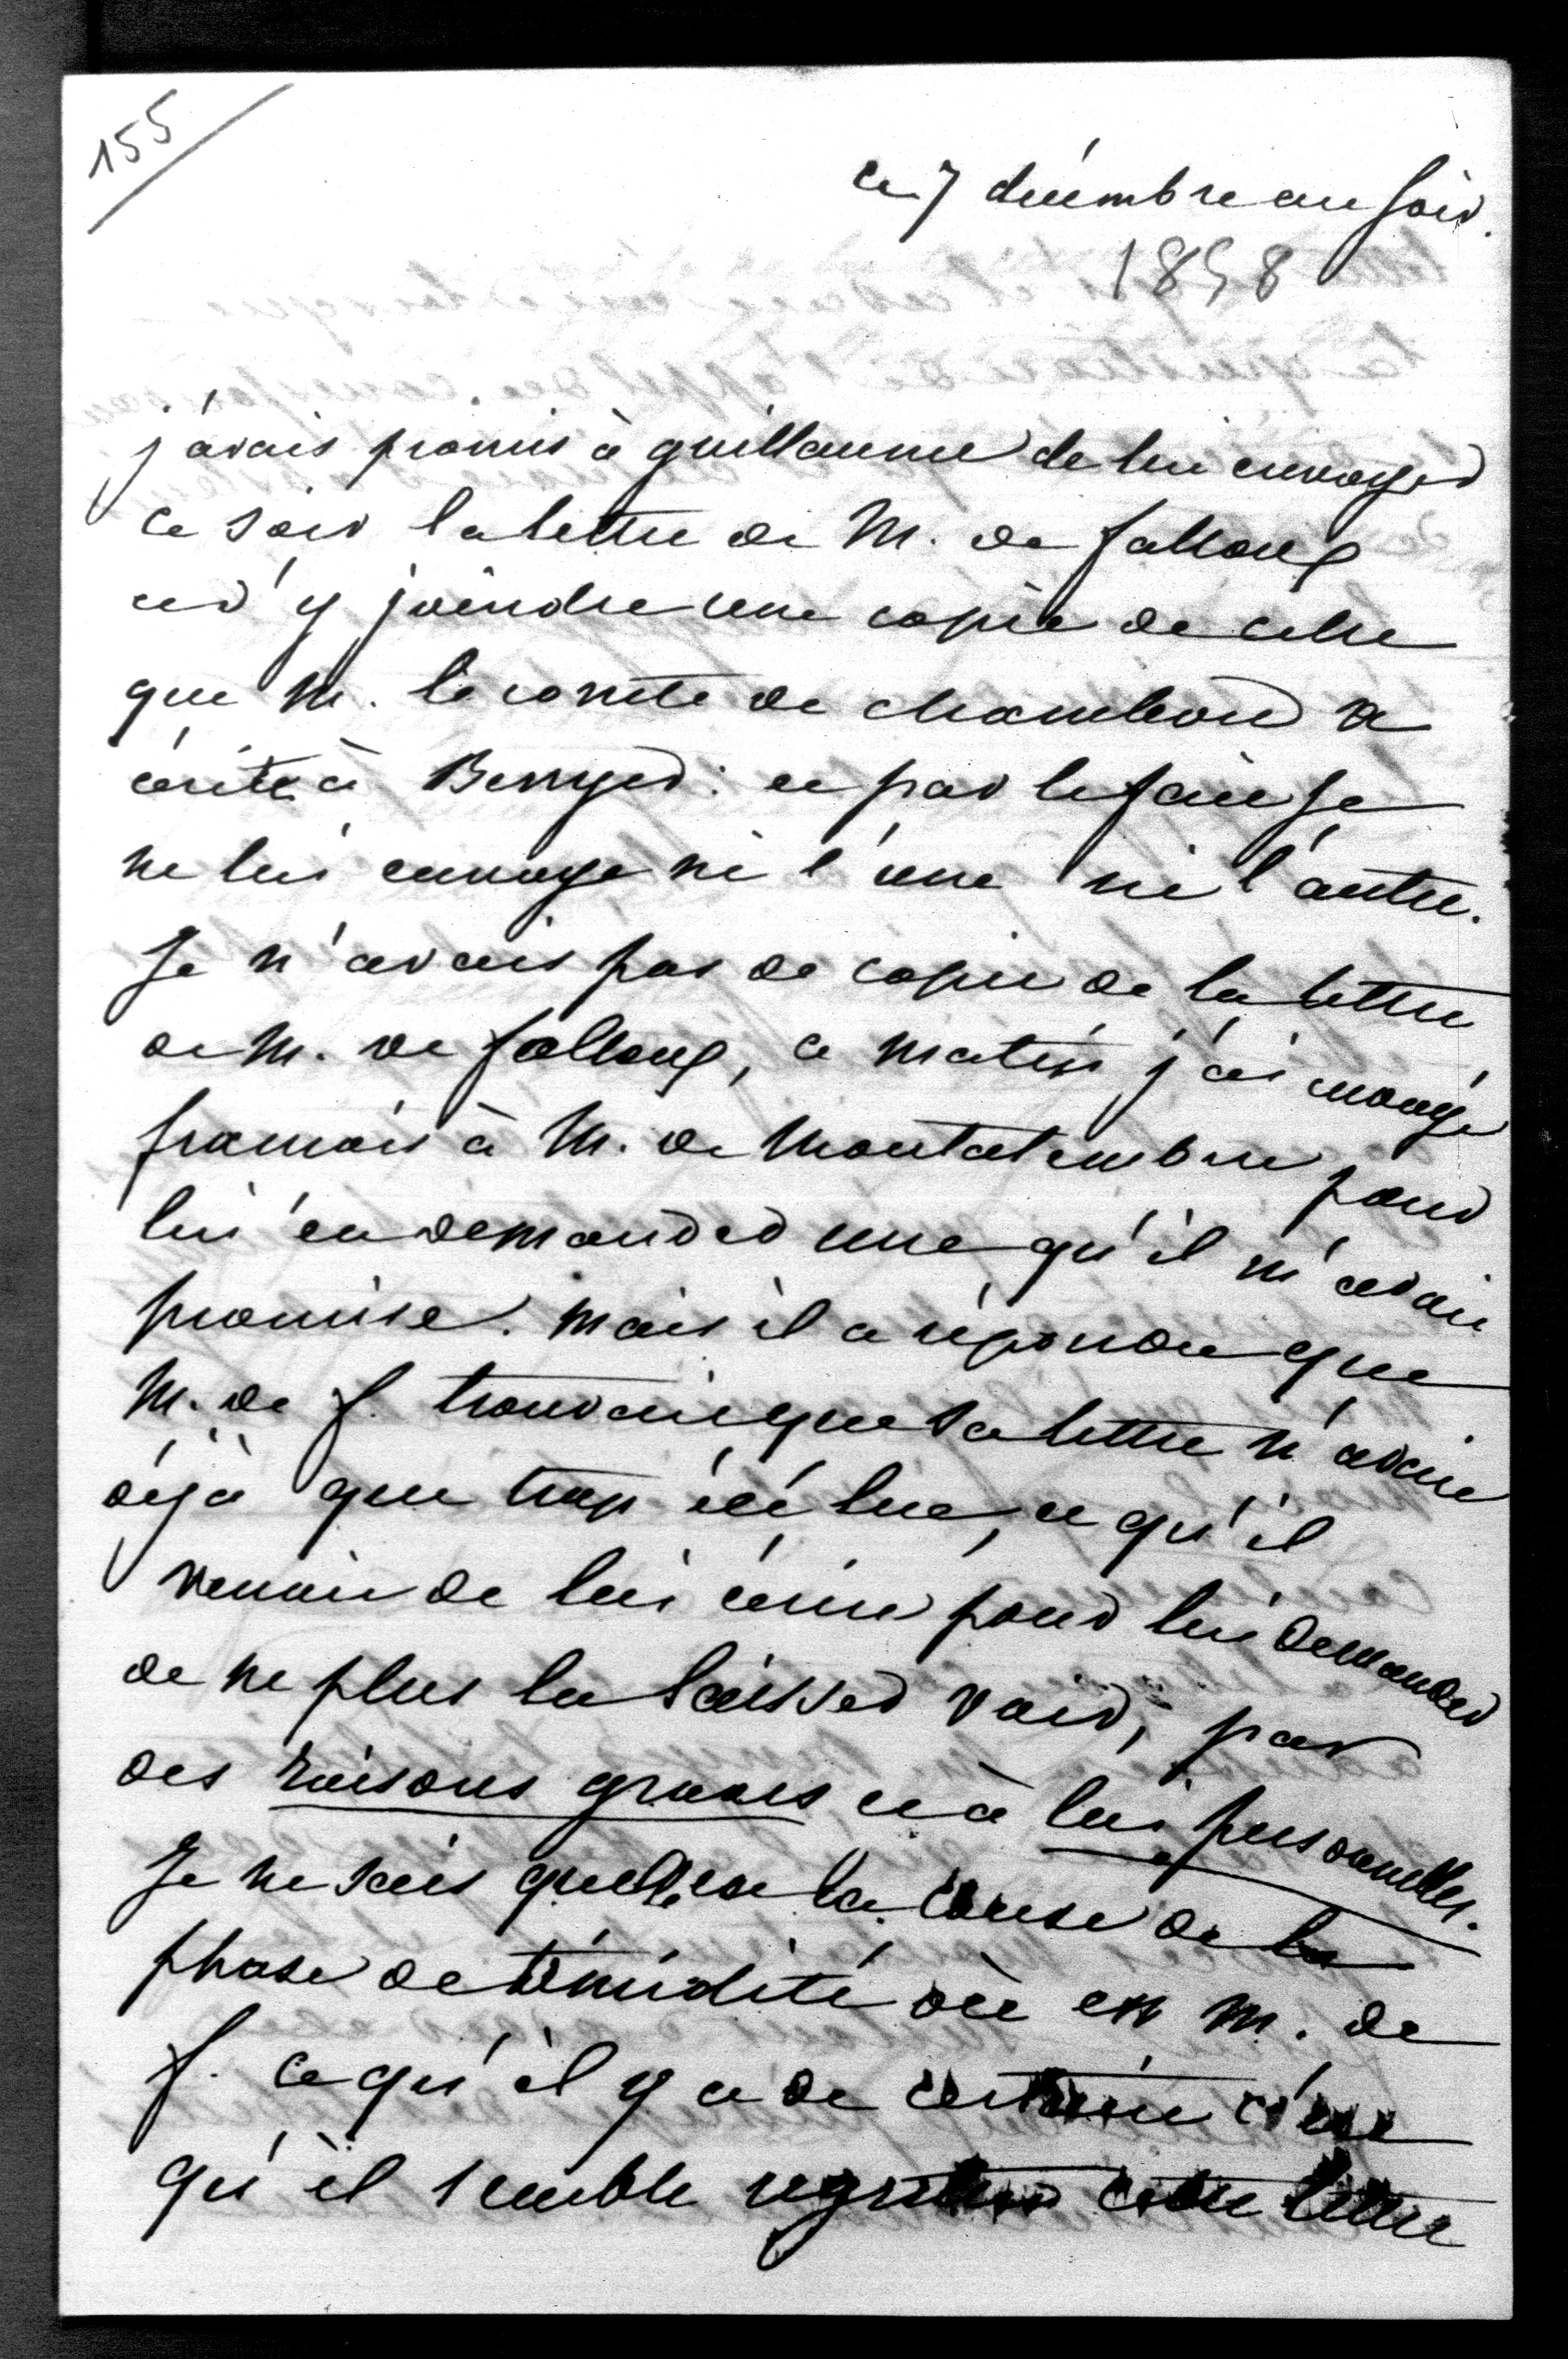 155
ce 7 décembre au soir.
1858
j'avais promis à guillaume de lui envoyer
ce soir la lettre de M. de falloux
et d'y joindre une copie de celle
que M. le comte de chambord a
écrite à Berryer : et par le fait je
ne lui envoye ni l'une ni l'autre.
Je n'avais pas de copie de la lettre
de M. de falloux, ce matin j'ai envoyé
francois à M. de Montalembert pour
lui en demander une qu'il m'avait
promise. mais il a répondu que
M. de f. trouvait que sa lettre n'avait
déjà que trop été lue, et qu'il
venait de lui écrire pour lui demander
de ne plus la laisser voir, par
des raisons graves et à lui personnelles.
Je ne sais quelle est la cause de la
phase de timidité où est M. de
f. ce qu'il y a de certain c'est
qu'il semble regretter cette lettre